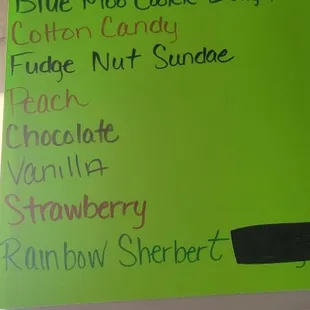 Blue Moo Cookie
Cotton Candy
Fudge Nut Sundae
Peach
Chocolate
Vanilla
Strawberry
Rainbow Sherbert